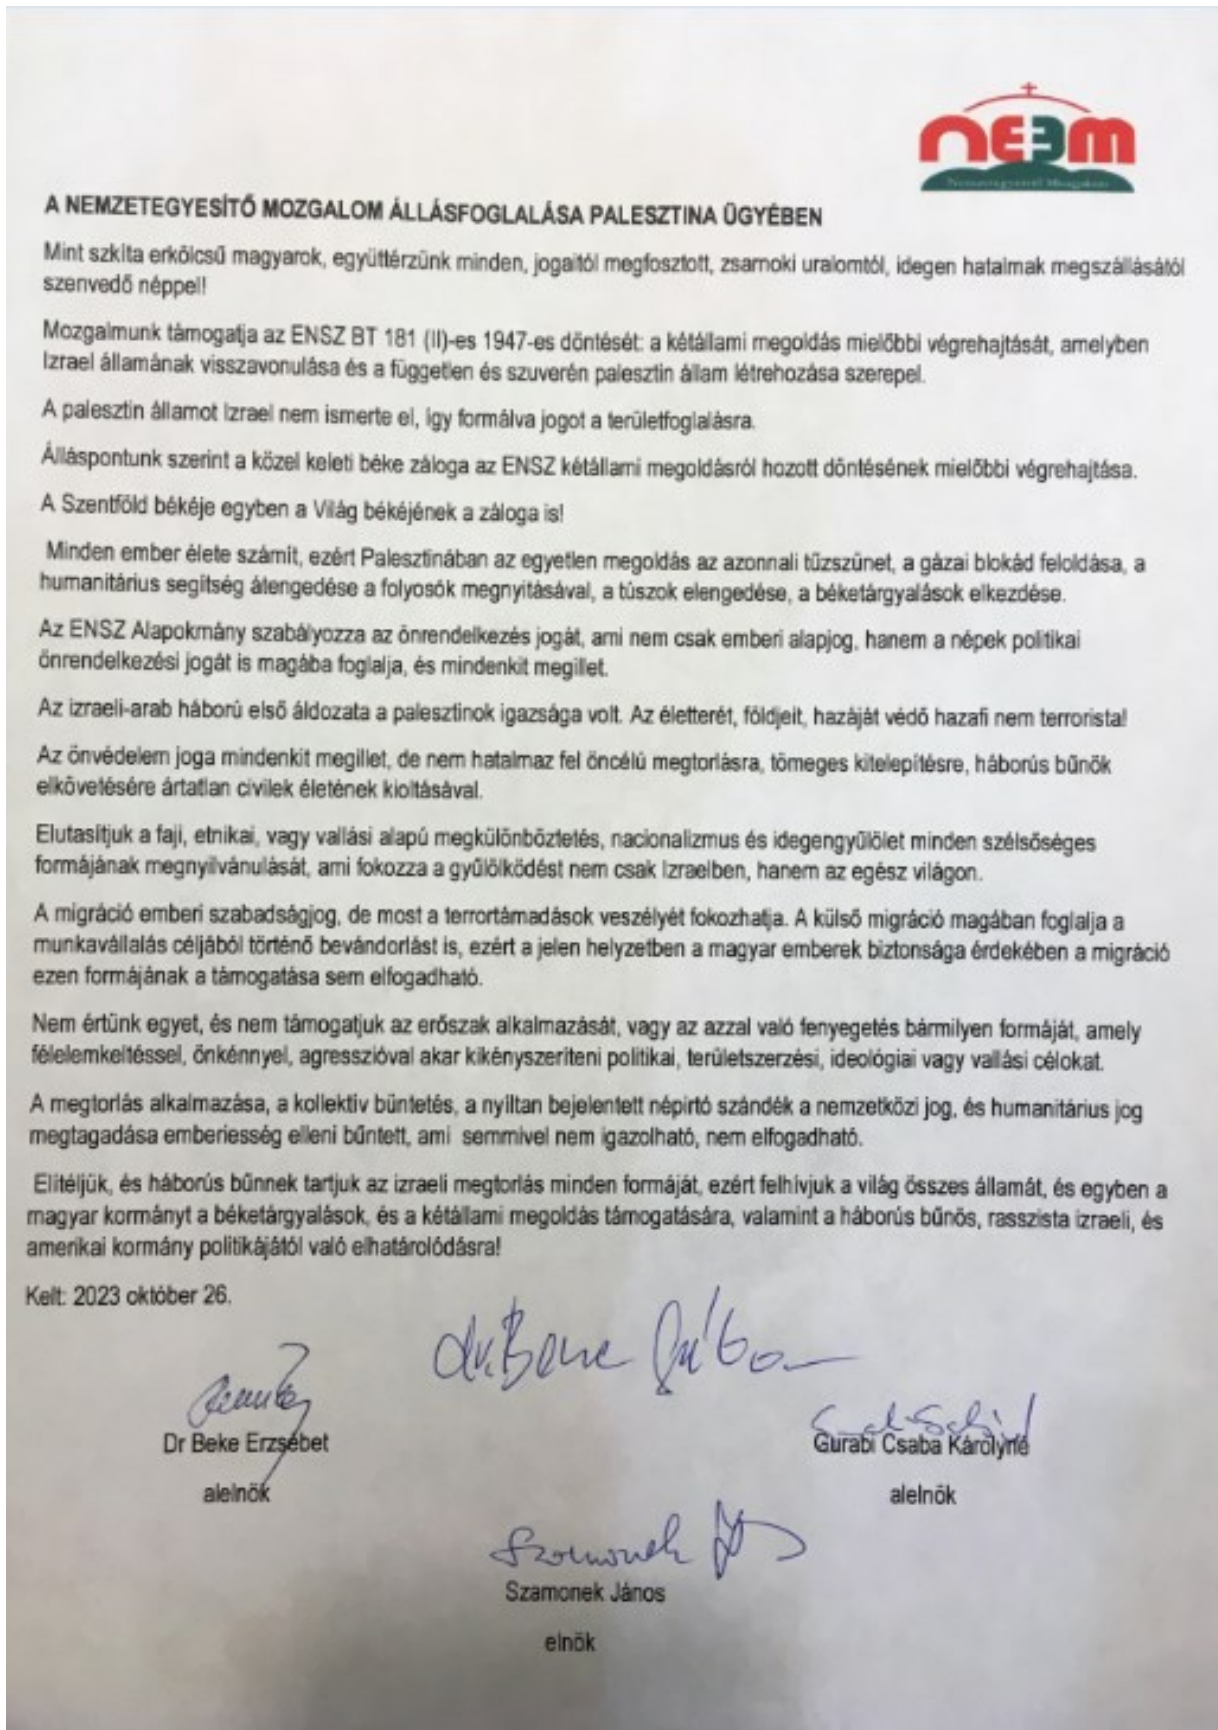 NEEM
Nemzetegyesítő Mozgalom
A NEMZETEGYESÍTŐ MOZGALOM ÁLLÁSFOGLALÁSA PALESZTINA ÜGYÉBEN
Mint szkíta erkölcsű magyarok, együttérzünk minden, jogaitól megfosztott, zsarnoki uralomtól, idegen hatalmak megszállásától
szenvedő néppel!
Mozgalmunk támogatja az ENSZ BT 181 (II)-es 1947-es döntését: a kétállami megoldás mielőbbi végrehajtását, amelyben
Izrael államának visszavonulása és a független és szuverén palesztin állam létrehozása szerepel.
A palesztin államot Izrael nem ismerte el, így formálva jogot a területfoglalásra.
Álláspontunk szerint a közel keleti béke záloga az ENSZ kétállami megoldásról hozott döntésének mielőbbi végrehajtása.
A Szentföld békéje egyben a Világ békéjének a záloga is!
Minden ember élete számít, ezért Palesztinában az egyetlen megoldás az azonnali tűzszünet, a gázai blokád feloldása, a
humanitárius segítség átengedése a folyosók megnyitásával, a túszok elengedése, a béketárgyalások elkezdése.
Az ENSZ Alapokmány szabályozza az önrendelkezés jogát, ami nem csak emberi alapjog, hanem a népek politikai
önrendelkezési jogát is magába foglalja, és mindenkit megillet.
Az izraeli-arab háború első áldozata a palesztinok igazsága volt. Az életterét, földjeit, hazáját védő hazafi nem terrorista!
Az önvédelem joga mindenkit megillet, de nem hatalmaz fel öncélú megtorlásra, tömeges kitelepítésre, háborús bűnök
elkövetésére ártatlan civilek életének kioltásával.
Elutasítjuk a faji, etnikai, vagy vallási alapú megkülönböztetés, nacionalizmus és idegengyűlölet minden szélsőséges
formájának megnyilvánulását, ami fokozza a gyűlölködést nem csak Izraelben, hanem az egész világon.
A migráció emberi szabadságjog, de most a terrortámadások veszélyét fokozhatja. A külső migráció magában foglalja a
munkavállalás céljából történő bevándorlást is, ezért a jelen helyzetben a magyar emberek biztonsága érdekében a migráció
ezen formájának a támogatása sem elfogadható.
Nem értünk egyet, és nem támogatjuk az erőszak alkalmazását, vagy az azzal való fenyegetés bármilyen formáját, amely
félelemkeltéssel, önkénnyel, agresszióval akar kikényszeríteni politikai, területszerzési, ideológiai vagy vallási célokat.
A megtorlás alkalmazása, a kollektív büntetés, a nyíltan bejelentett népirtó szándék a nemzetközi jog, és humanitárius jog
megtagadása emberiesség elleni bűntett, ami semmivel nem igazolható, nem elfogadható.
Elítéljük, és háborús bűnnek tartjuk az izraeli megtorlás minden formáját, ezért felhívjuk a világ összes államát, és egyben a
magyar kormányt a béketárgyalások, és a kétállami megoldás támogatására, valamint a háborús bűnös, rasszista izraeli, és
amerikai kormány politikájától való elhatárolódásra!
Kelt: 2023 október 26.
Dr Beke Erzsébet
alelnök
Gurabi Csaba Károlyné
alelnök
Szamonek János
elnök